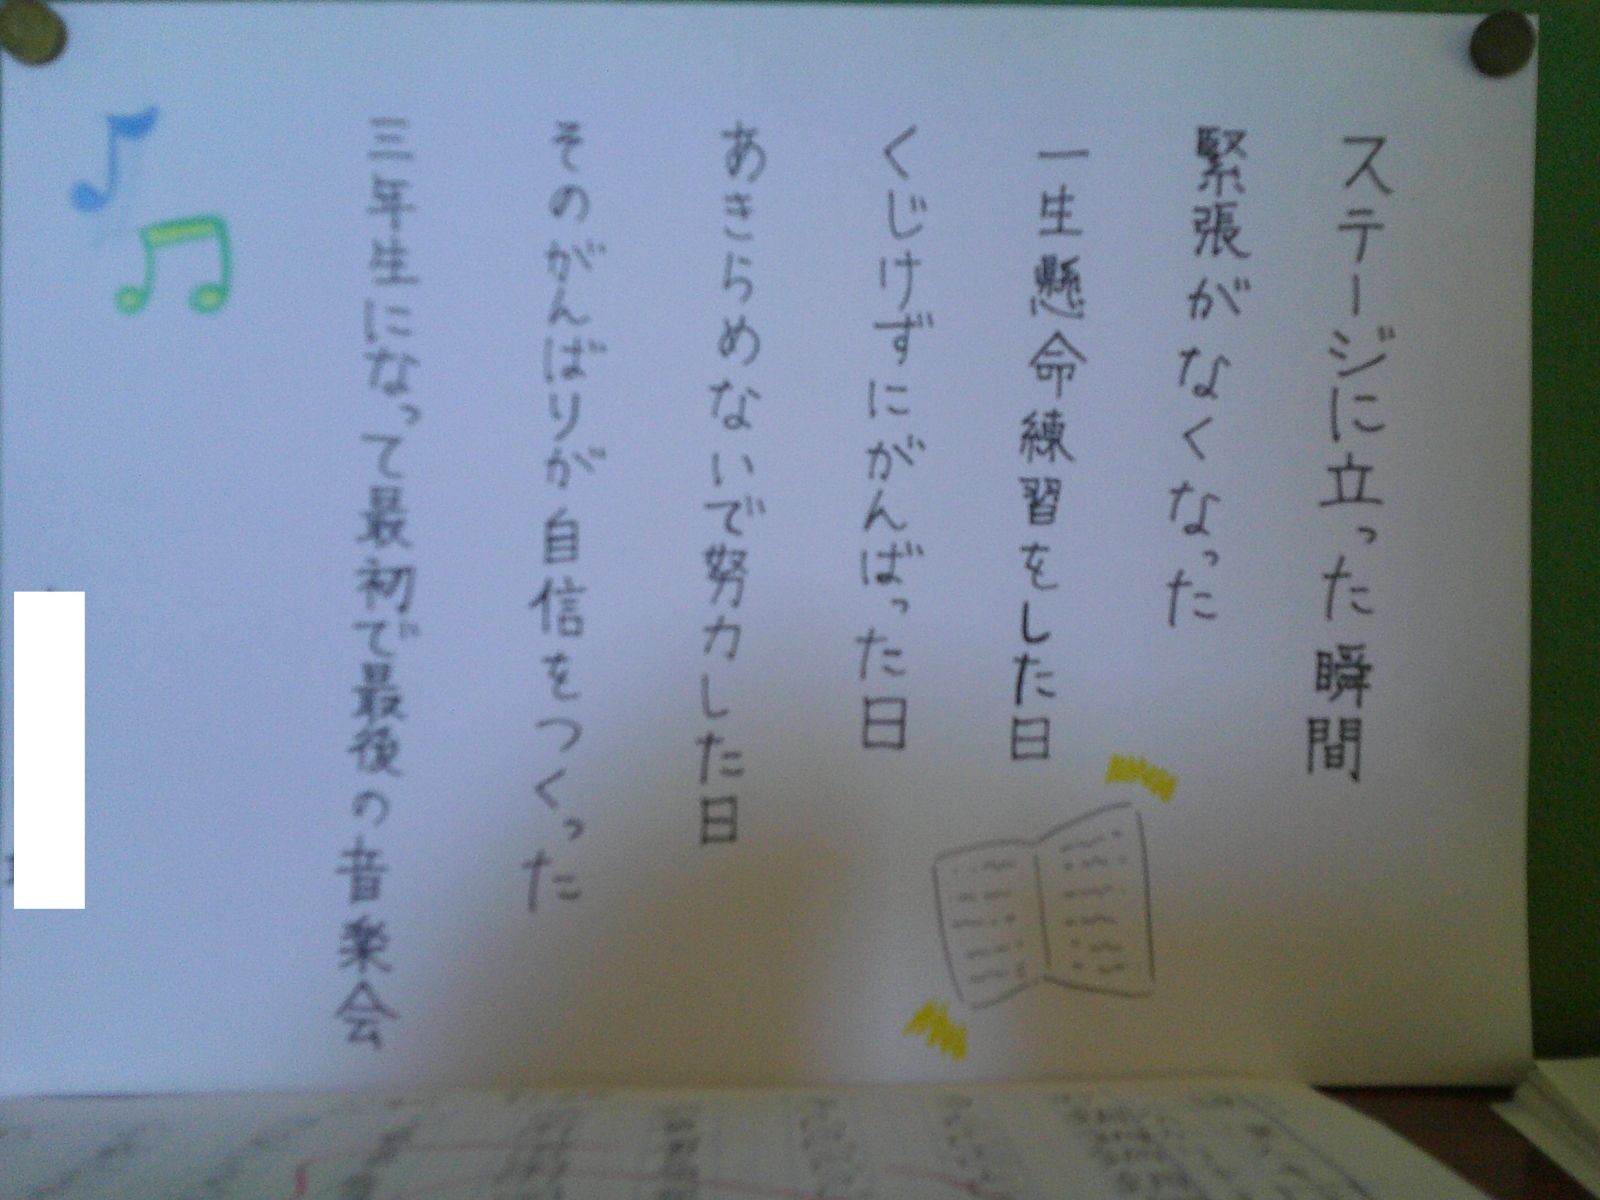 ステージに立った瞬間
緊張がなくなった
一生懸命練習をした日
くじけずにがんばった日
あきらめないで努力した日
そのがんばりが自信をつくった
三年生になって最初で最後の音楽会